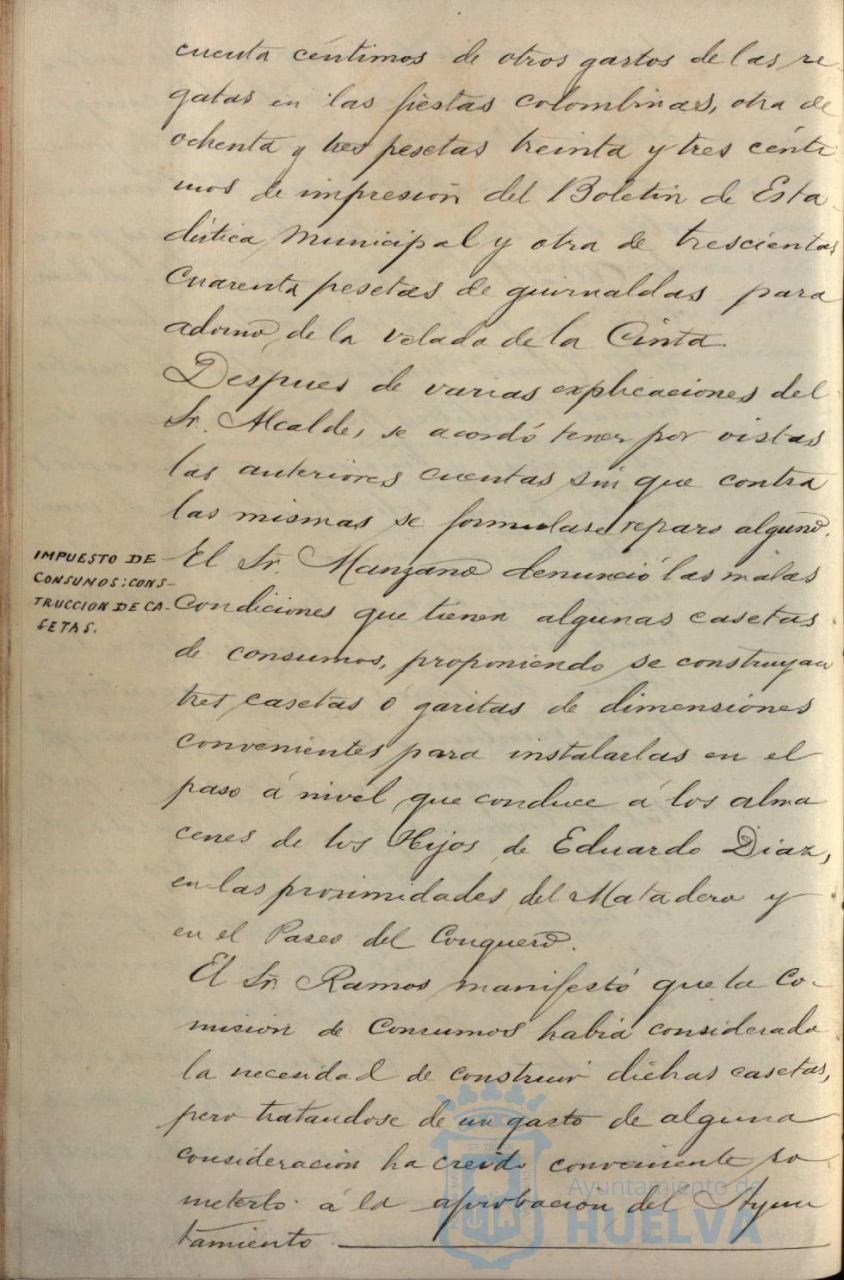 cuenta céntimos de otros gastos de las re-
gatas en las fiestas colombinas, otra de
ochenta y tres pesetas treinta y tres cénti
mos de impresión del Boletin de Esta-
dística Municipal y otra de trescientas
cuarenta pesetas de guirnaldas para
adorno de la velada de la Cinta.
Despues de varias explicaciones del
Sr. Alcalde, se acordó tener por vistas
las anteriores cuentas sin que contra
las mismas se formulase reparo alguno.
IMPUESTO DE
CONSUMOS: CONS-
TRUCCION DE CA-
SETAS.
El Sr. Manzano denunció las malas
condiciones que tienen algunas casetas
de consumos, proponiendo se construyan
tres casetas ó garitas de dimensiones
convenientes para instalarlas en el
paso á nivel que conduce á los alma
cenes de los Hijos de Eduardo Diaz,
en las proximidades del Matadero y
en el Paseo del Conquero.
El Sr. Ramos manifestó que la Co-
misión de Consumos habia considerado
la necesidad de construir dichas casetas,
pero tratandose de un gasto de alguna
consideración ha creido conveniente so
meterlo á la aprobación del Ayun
tamiento.
Ayuntamiento de
HUELVA